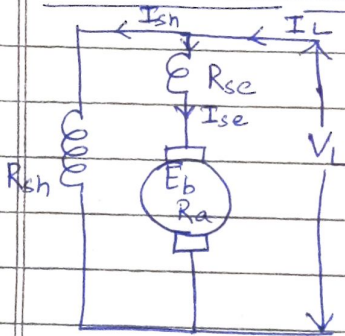 Ish IL
Rse
Ise
VL
Rsh
Eb
Ra